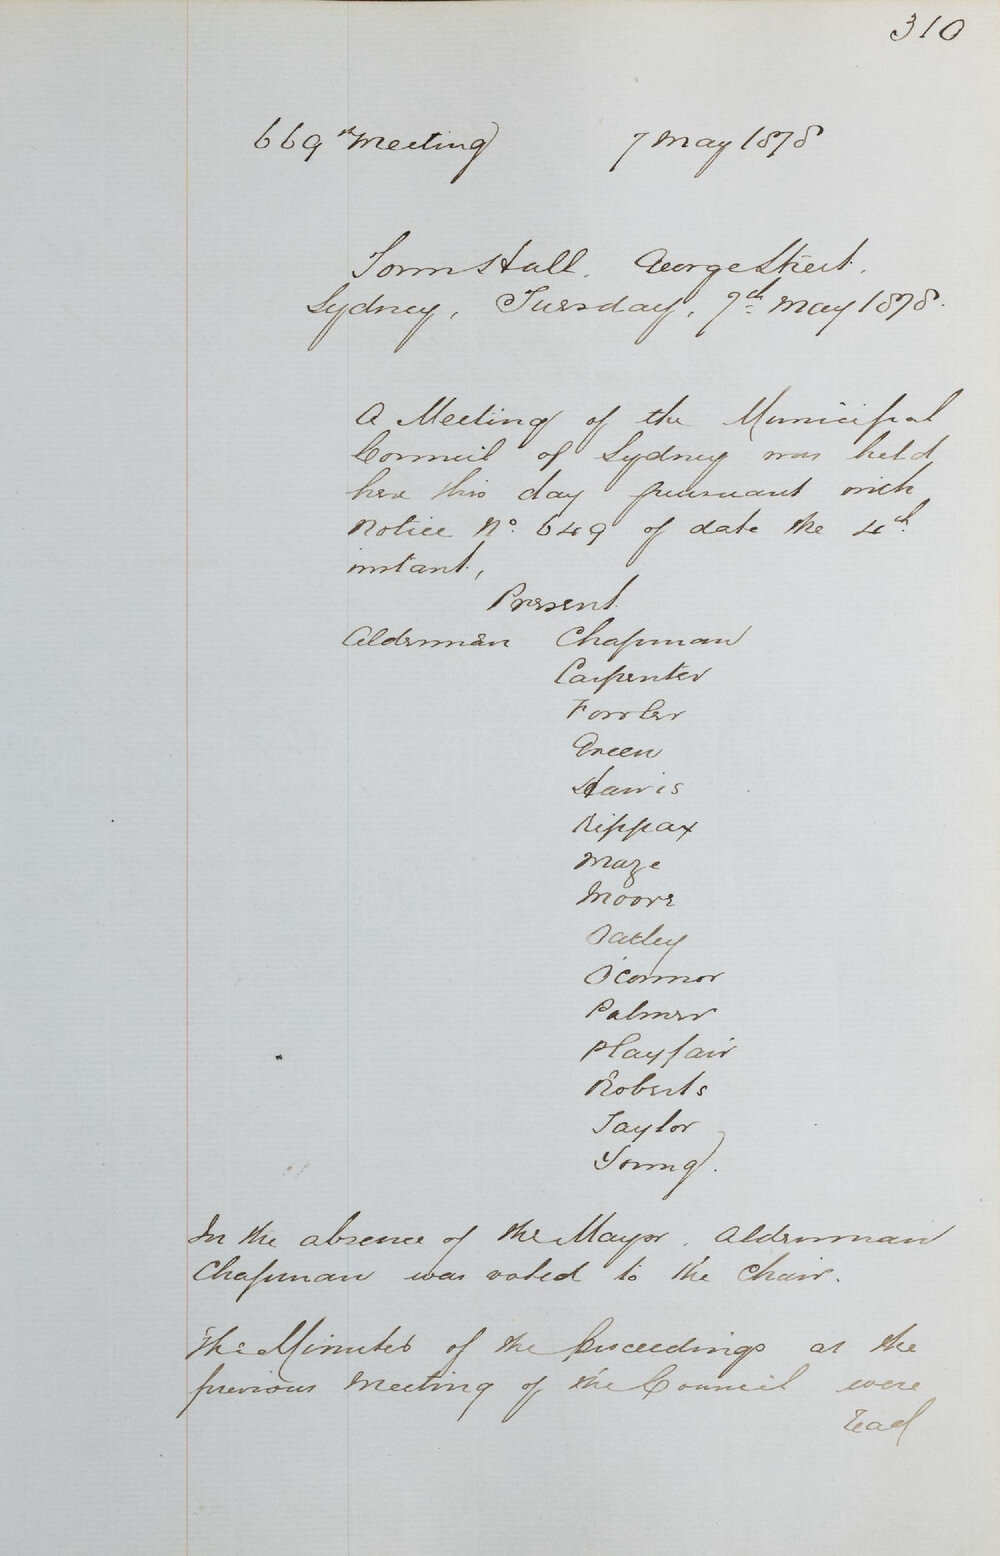 310
669th Meeting 7 May 1878
Town Hall. George Street.
Sydney, Tuesday, 7th May 1878.
A Meeting of the Municipal
Council of Sydney was held
here this day pursuant with
Notice No. 649 of date the 4th
instant,
Present
Aldermen Chapman
Carpenter
Fowler
Green
Harris
Kippax
Maze
Moore
Oatley
O'Connor
Palmer
Playfair
Roberts
Taylor
Young.
In the absence of the Mayor. Alderman
Chapman was voted to the Chair.
The Minutes of the Proceedings at the
previous Meeting of the Council were
read